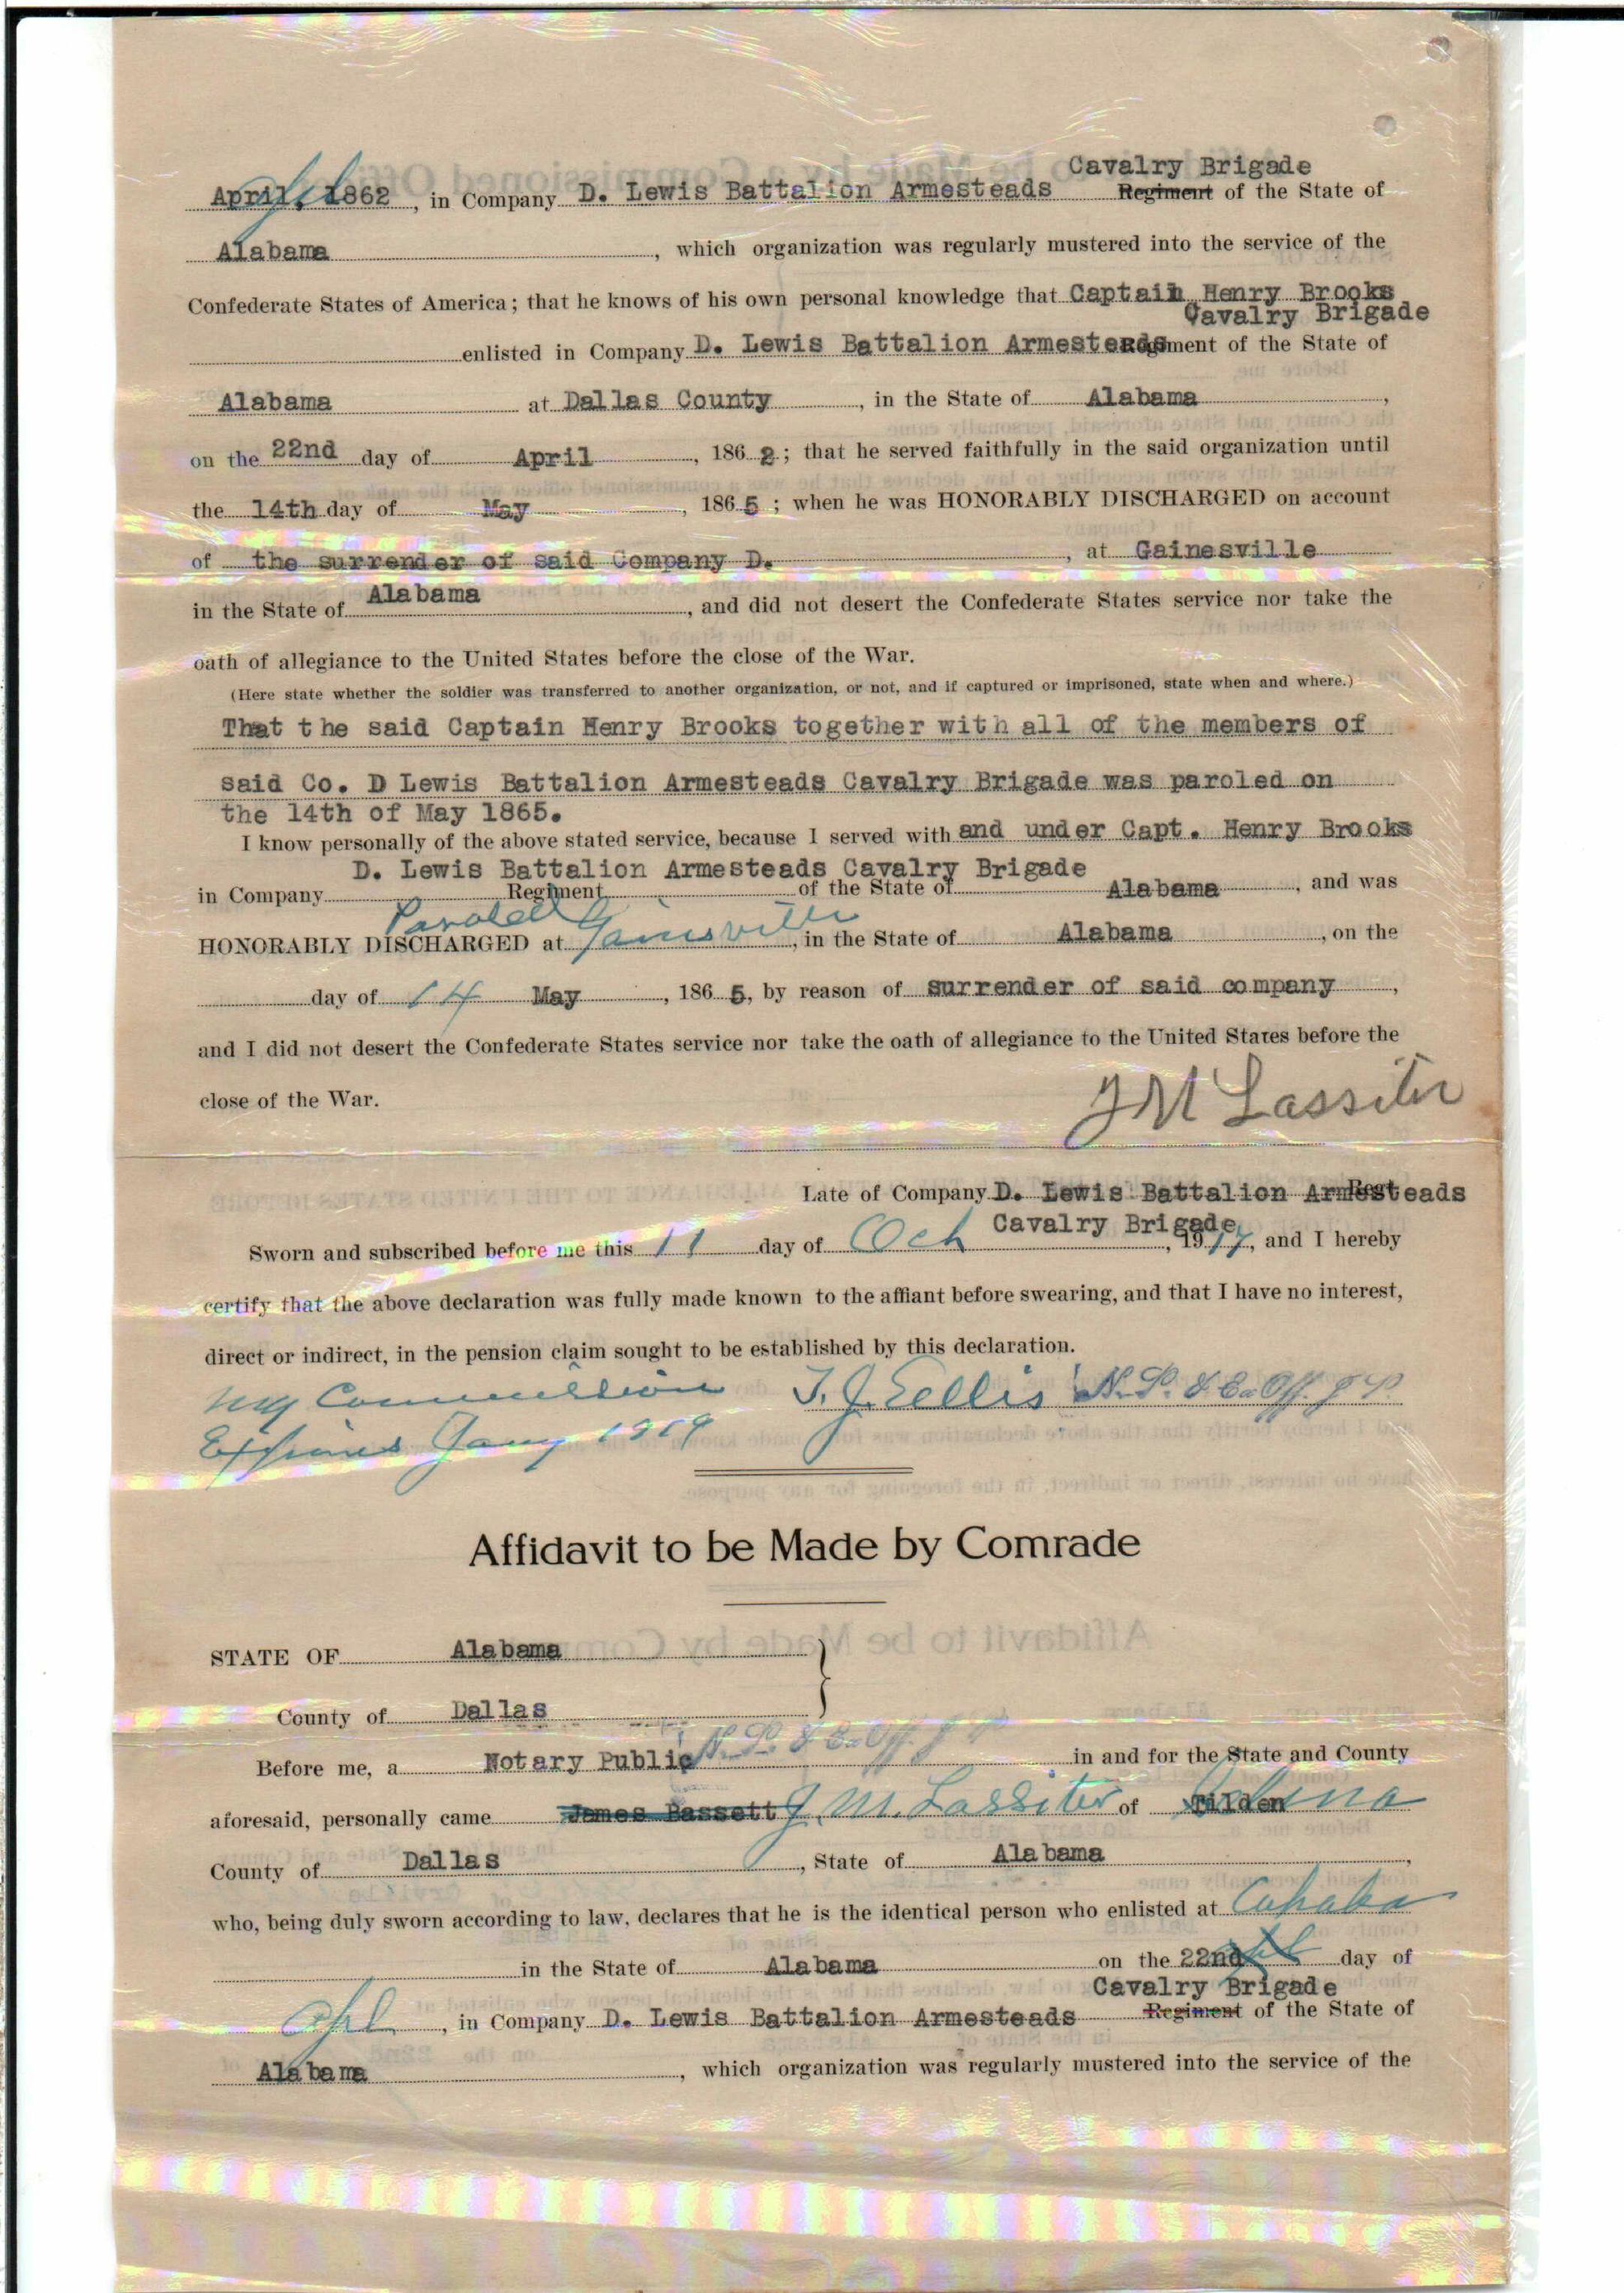 Cavalry Brigade
April, 1862, in Company D. Lewis Battalion Armesteads Regiment of the State of
Alabama, which organization was regularly mustered into the service of the
Confederate States of America; that he knows of his own personal knowledge that Captain Henry Brooks
Cavalry Brigade
enlisted in Company D. Lewis Battalion Armesteads Regiment of the State of
Alabama at Dallas County, in the State of Alabama,
on the 22nd day of April, 1862; that he served faithfully in the said organization until
the 14th day of May, 1865; when he was HONORABLY DISCHARGED on account
of the surrender of said Company D., at Gainesville
in the State of Alabama, and did not desert the Confederate States service nor take the
oath of allegiance to the United States before the close of the War.
(Here state whether the soldier was transferred to another organization, or not, and if captured or imprisoned, state when and where.)
That the said Captain Henry Brooks together with all of the members of
said Co. D Lewis Battalion Armesteads Cavalry Brigade was paroled on
the 14th of May 1865.
I know personally of the above stated service, because I served with and under Capt. Henry Brooks
D. Lewis Battalion Armesteads Cavalry Brigade
in Company Regiment of the State of Alabama, and was
Paroled
HONORABLY DISCHARGED at Gainsville, in the State of Alabama, on the
day of 14 May, 1865, by reason of surrender of said company,
and I did not desert the Confederate States service nor take the oath of allegiance to the United States before the
close of the War.
J M Lassiter
Late of Company D. Lewis Battalion Armesteads Regt
Cavalry Brigade
Sworn and subscribed before me this 11 day of Och, 1917, and I hereby
certify that the above declaration was fully made known to the affiant before swearing, and that I have no interest,
direct or indirect, in the pension claim sought to be established by this declaration.
My Commission T. J. Ellis N. P. & Ex Off. J P.
Expires Jany 1919
Affidavit to be Made by Comrade
STATE OF Alabama
County of Dallas
Before me, a Notary Public N. P. & Ex Off. J P in and for the State and County
aforesaid, personally came James Bassett J. M. Lassiter of Tilden
County of Dallas, State of Alabama,
who, being duly sworn according to law, declares that he is the identical person who enlisted at Cahaba
in the State of Alabama on the 22nd day of
Cavalry Brigade
Apl, in Company D. Lewis Battalion Armesteads Regiment of the State of
Alabama, which organization was regularly mustered into the service of the